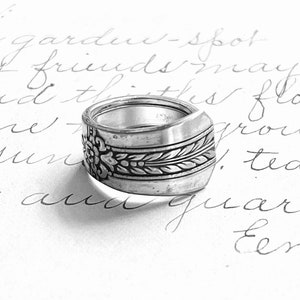 garden-spot
friends may
thistles flo
ne - grow
sun tea
and guar
Een